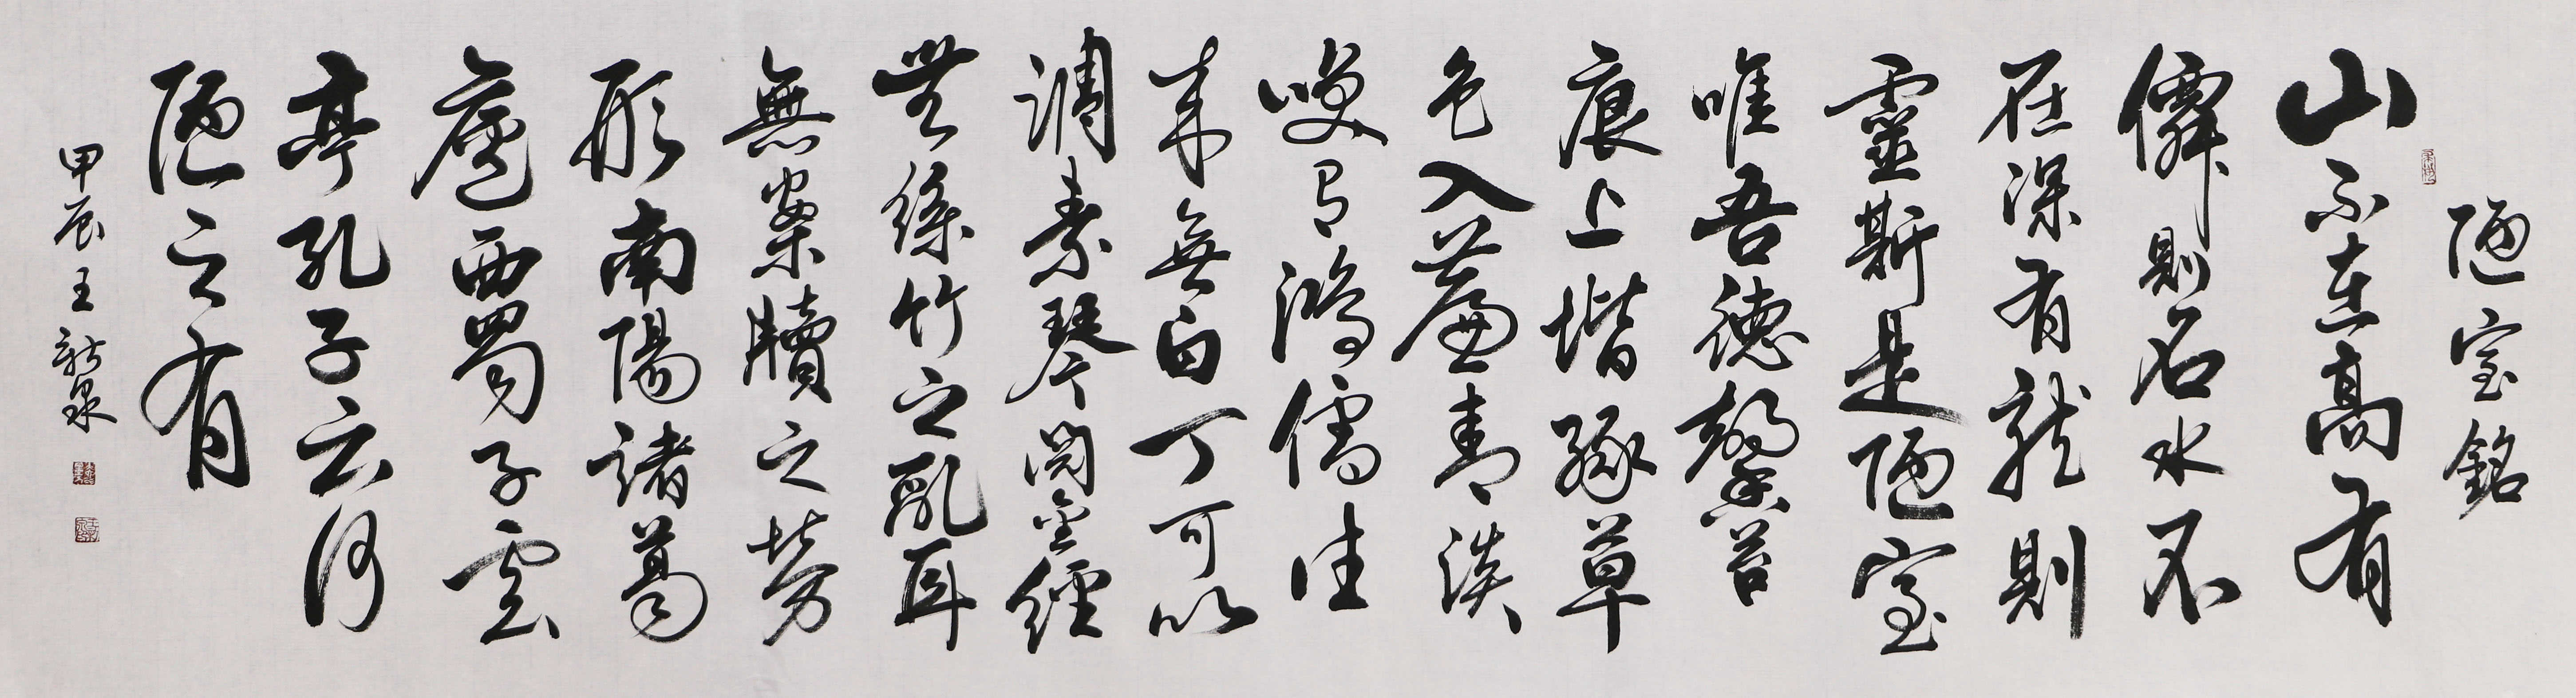 陋室銘
山不在高有
僊則名水不
在深有龍則
靈斯是陋室
唯吾德馨苔
痕上堦綠草
色入簾青談
咲有鴻儒往
来無白丁可以
調素琴閱金經
無絲竹之亂耳
無案牘之勞
形南陽諸葛
廬西蜀子雲
亭孔子云何
陋之有
甲辰王新泉